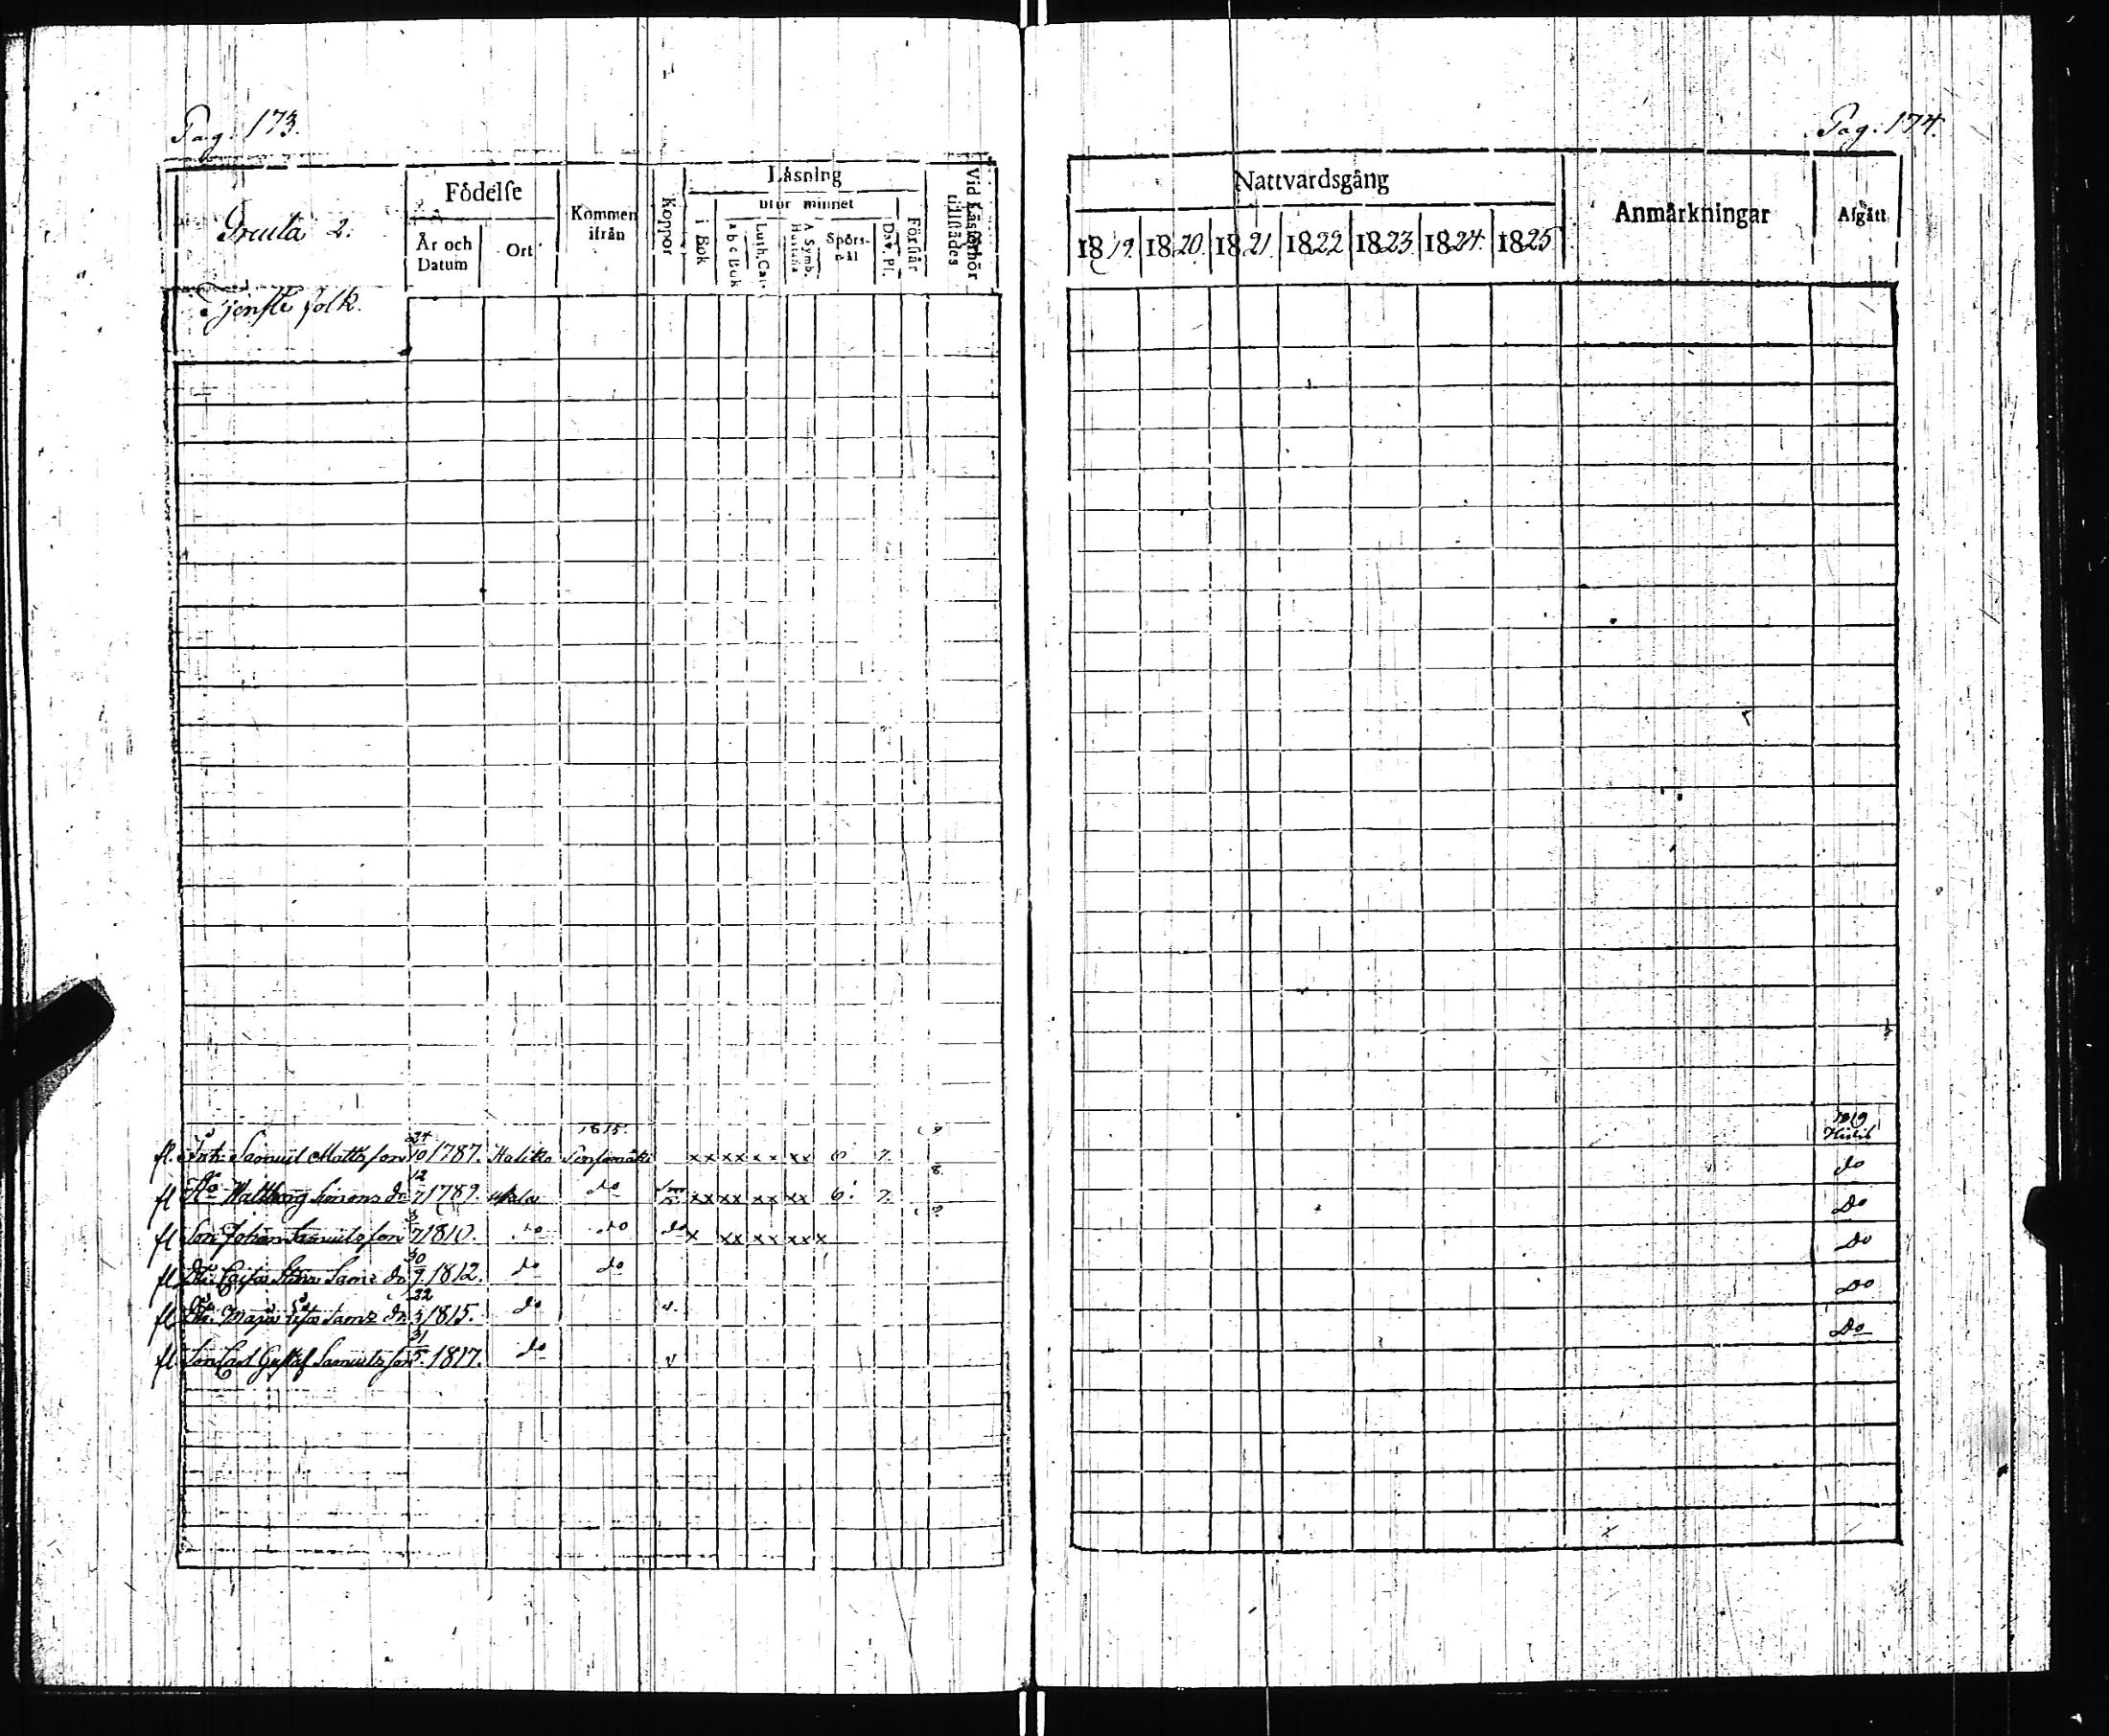 Pag. 173.
Födelse
Kommen ifrån
Koppor
Läsning
utur minnet
i Bok
a b c Bok
Luth. Cat.
A Symb. Hustafla
Spörsmål
Dav. Ps.
Förstår
Vid Läsförhör tillstädes
2.
År och Datum
Ort
Tjenste folk.
1815.
fl. Samuel Mattsson 24/10 1787. Halikko xx xx xx xx 6. 7. 8
fl Walborg Simons dr 12/7 1789. do xx xx xx xx 6. 7. 8.
fl Son Johan Samuelsson 3/7 1810. do do do x xx xx xx x
fl Dr. Cajsa Stina Sams dr 30/9 1812. do do
fl Dr. Maja Lisa Sams dr 22/3 1815. do v.
fl Son Carl Gustaf Samuelsson 31/5 1817. do v
Pag. 174.
Nattvardsgång
Anmärkningar
Afgått
1819. 1820. 1821. 1822 1823 1824. 1825
1819
do
Do
Do
Do
Do